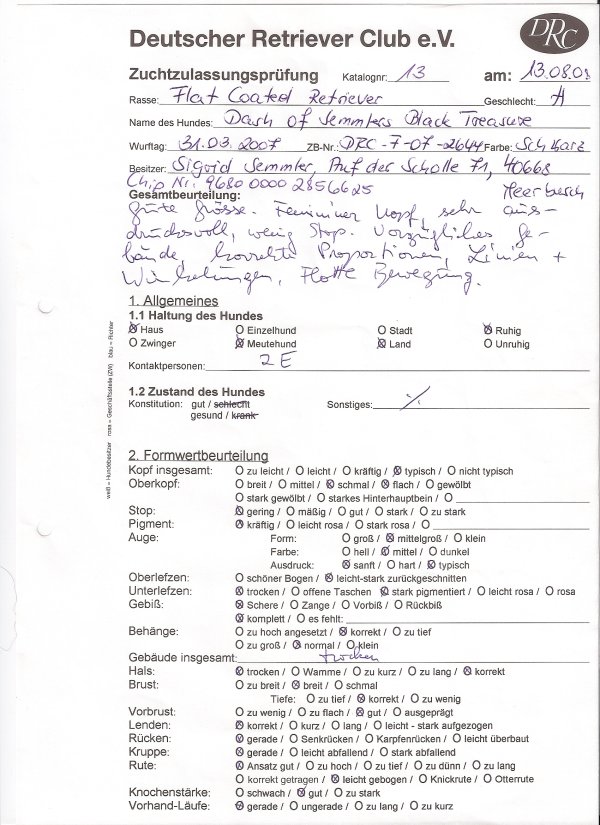 Deutscher Retriever Club e.V.
DRC
Zuchtzulassungsprüfung Katalognr: 13 am: 13.08.0
Rasse: Flat Coated Retriever Geschlecht: H
Name des Hundes: Dash of Semmlers Black Treasure
Wurftag: 31.03.2007 ZB-Nr.: DRC-F-07-2644 Farbe: Schwarz
Besitzer: Sigrid Semmler, Auf der Scholle 71, 40668
Chip Nr: 9680 0000 2856625 Meerbusch
Gesamtbeurteilung:
gute Grösse. Femininer Kopf, sehr aus-
drucksvoll, wenig Stop. Vorzügliches Ge-
bäude, korrekte Proportionen, Linien +
Winkelungen, Flotte Bewegung.
1. Allgemeines
1.1 Haltung des Hundes
Haus O Einzelhund O Stadt Ruhig
O Zwinger Meutehund Land O Unruhig
Kontaktpersonen: 2 E
1.2 Zustand des Hundes
Konstitution: gut / schlecht Sonstiges: ⁒
gesund / krank
weiß = Hundebesitzer rosa = Geschäftsstelle (ZW) blau = Richter
2. Formwertbeurteilung
Kopf insgesamt: O zu leicht / O leicht / O kräftig / typisch / O nicht typisch
Oberkopf: O breit / O mittel / schmal / flach / O gewölbt
O stark gewölbt / O starkes Hinterhauptbein / O
Stop: gering / O mäßig / O gut / O stark / O zu stark
Pigment: kräftig / O leicht rosa / O stark rosa / O
Auge: Form: O groß / mittelgroß / O klein
Farbe: O hell / mittel / O dunkel
Ausdruck: sanft / O hart / typisch
Oberlefzen: O schöner Bogen / leicht-stark zurückgeschnitten
Unterlefzen: trocken / O offene Taschen stark pigmentiert / O leicht rosa / O rosa
Gebiß: Schere / O Zange / O Vorbiß / O Rückbiß
komplett / O es fehlt:
Behänge: O zu hoch angesetzt / korrekt / O zu tief
O zu groß / normal / O klein
Gebäude insgesamt: trocken
Hals: trocken / O Wamme / O zu kurz / O zu lang / korrekt
Brust: O zu breit / breit / O schmal
Tiefe: O zu tief / korrekt / O zu wenig
Vorbrust: O zu wenig / O zu flach / gut / O ausgeprägt
Lenden: korrekt / O kurz / O lang / O leicht - stark aufgezogen
Rücken: gerade / O Senkrücken / O Karpfenrücken / O leicht überbaut
Kruppe: gerade / O leicht abfallend / O stark abfallend
Rute: Ansatz gut / O zu hoch / O zu tief / O zu dünn / O zu lang
O korrekt getragen / leicht gebogen / O Knickrute / O Otterrute
Knochenstärke: O schwach / gut / O zu stark
Vorhand-Läufe: gerade / O ungerade / O zu lang / O zu kurz